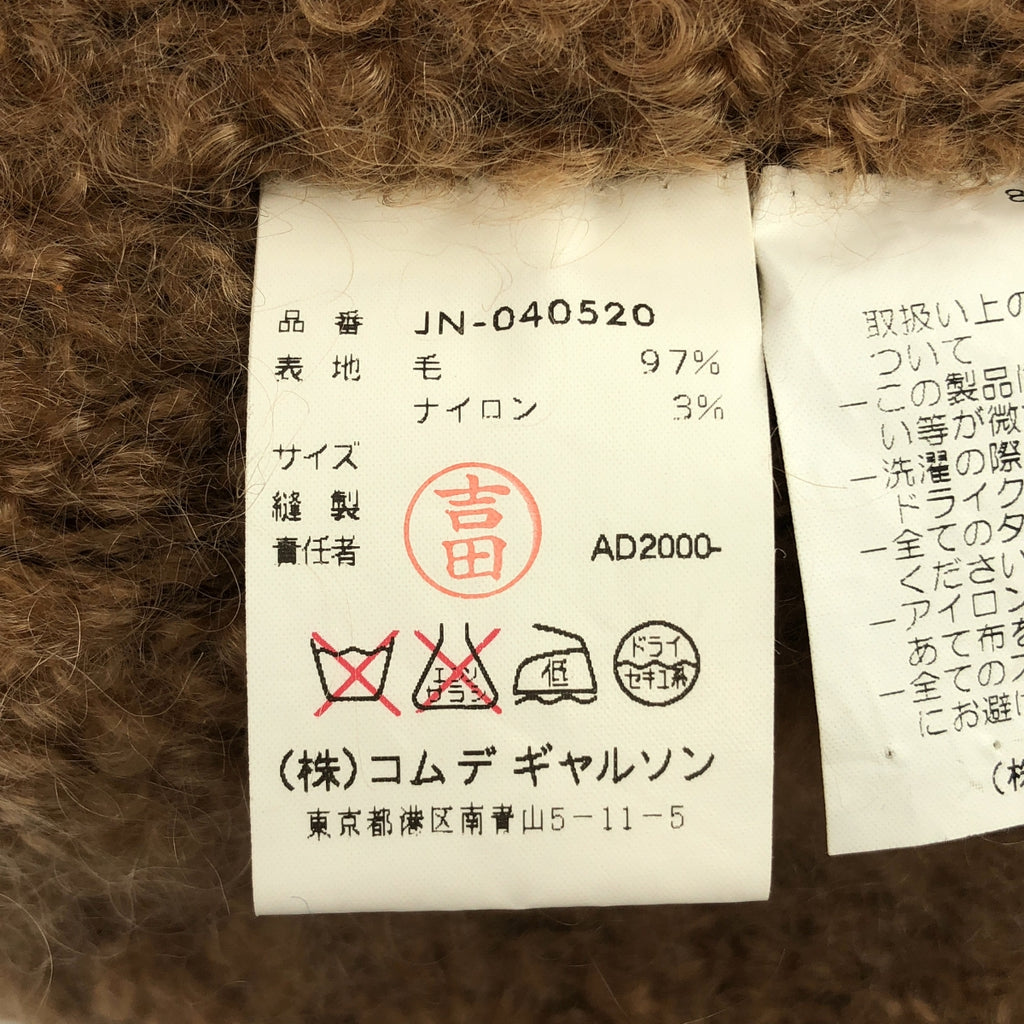 品番 JN-040520
表地 毛 97%
ナイロン 3%
サイズ
縫製
責任者 吉田 AD2000-
エンソ
サラシ
低
ドライ
セキユ系
(株)コムデ ギャルソン
東京都港区南青山5-11-5
8
取扱い上の
ついて
ーこの製品に
い等が微
ー洗濯の際
ドライク
ー全てのタ
ください
ーアイロン
あて布を
ー全てのス
にお避け
(株